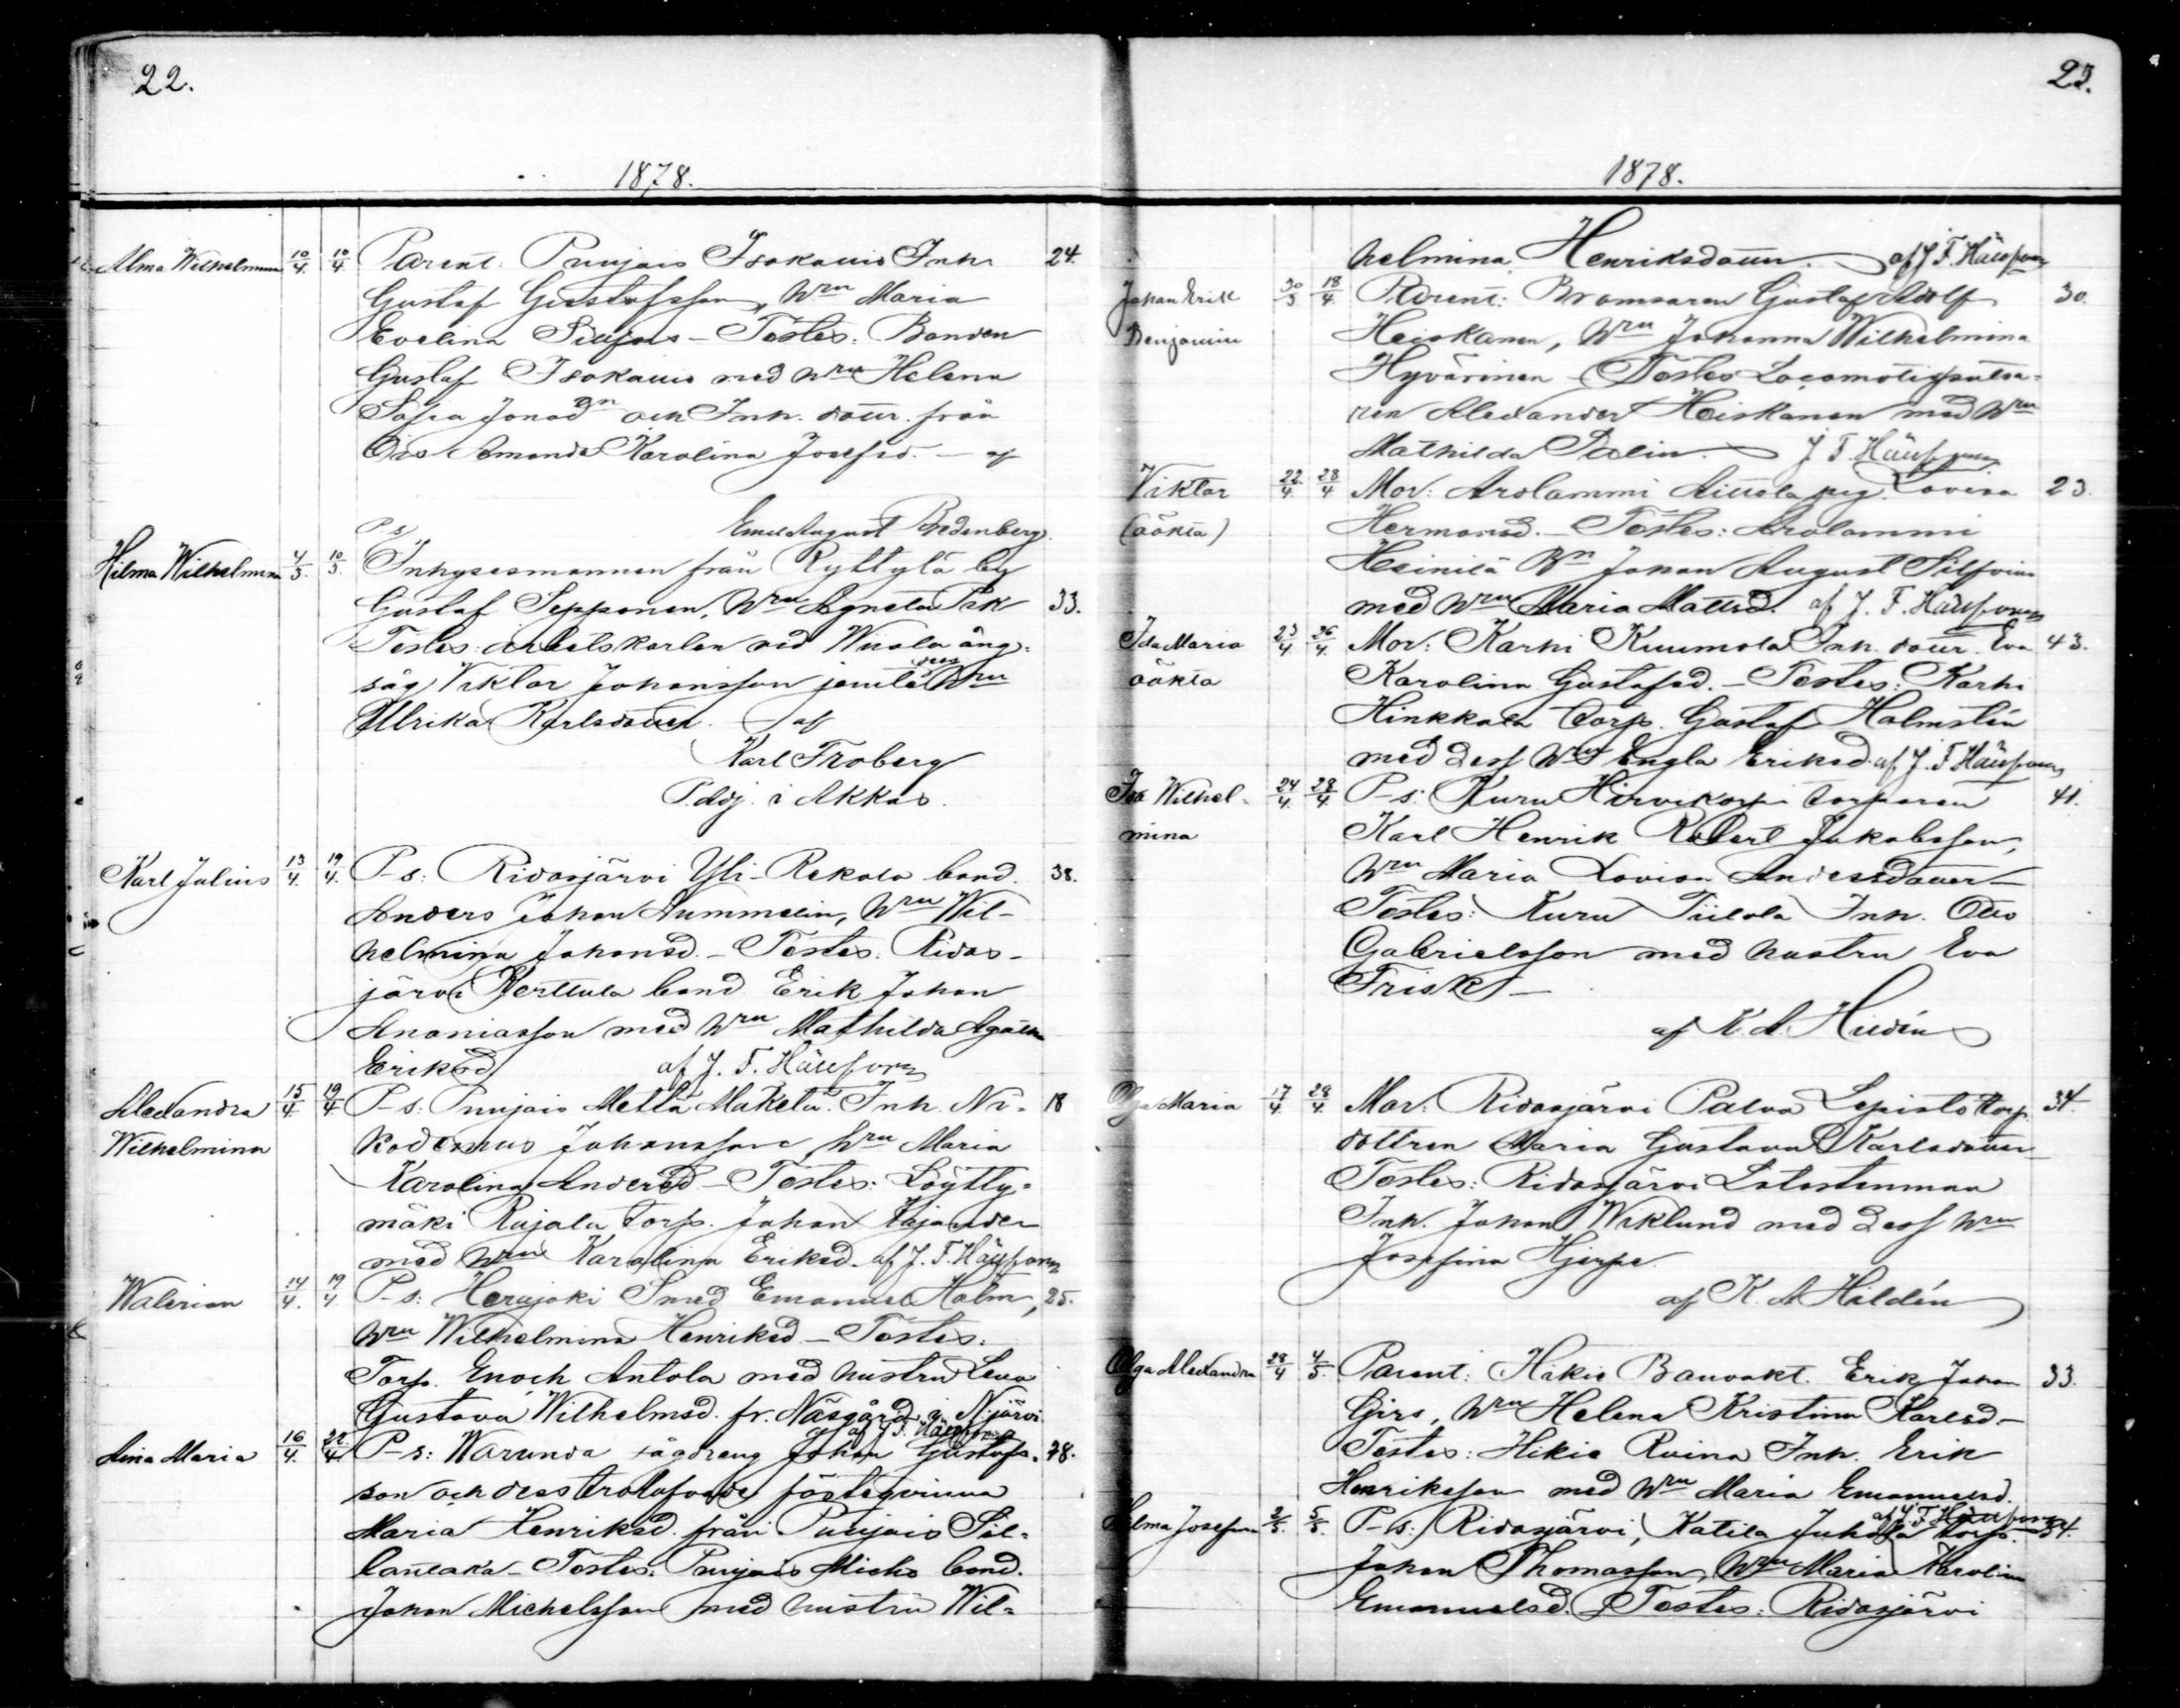 22.
1878.
Alma Wilhelmina 10/4. 10/4. Parent: Puujais Isokauis Inh. 24.
Gustaf Gustafsson, hru Maria
Evelina - Testes: Bonden
Gustaf Isokauis med hru Helena
Sofia Jonasdn och Inh. dottr. från
Ois Amanda Karolina Josefsd. - af
Emil August Bredenberg.
P-s
Hilma Wilhelmina 4/3. 10/3. Inhysesmannen från Ryttylä by
Gustaf Sepponen, hru Agneta 33.
Testes: arbetskarlen vid ång-
såg Viktor Johansson jemte dess hru
Ulrika Karlsdotter. - af
Karl Froberg
P. Adj. i Akkas.
Karl Julius 13/4. 19/4. P-s: Ridasjärvi Yli-Rekola bond. 38.
Anders Johan Nummelin, hru Wil-
helmina Johansd. - Testes: Ridas-
järvi Kerttula bond. Erik Johan
Ananiasson med hru Mathilda Agatha
Eriksd. af J. F. Häusforn
Alexandra 15/4. 19/4 P-s: Puujais Mattä Maketu. Inh. Ni- 18
Wilhelmina kodemus Johansson, hru Maria
Karolina Andersd - Testes: Löytty-
mäki Rajala torp. Johan Kajander
med hru Karolina Eriksd. af J. F. Häusforn
Walerian 14/4. 19/4 P-s: Herajoki Smed Emanuel Holm, 25.
hru Wilhelmina Henriksd - Testes:
Torp. Enoch Antola med hustru Lena
Gustava Wilhelmsd. fr. Näsgård i N.järvi
af J. F. Häusforn
Aina Maria 16/4. 22/4 P-s: Warunda sågdreng Johan Gustafs- 28.
son och dess trolofvade fästeqvinna
Maria Henriksd. från Puujais Sil-
lanlaka - Testes: Puujais Micho bond.
Johan Michelsson med hustru Wil-
23.
1878.
helmina Henriksdotter. af J. F. Häusforn
Johan Erik 30/3 18/4 Parent: Bromsaren Gustaf Adolf 30.
Benjamin Heiskanen, hru Johanna Wilhelmina
Hyvärinen - Testes Locomotivputsa-
ren Alexander Heiskanen med hru
Mathilda J. F. Häusforn
Viktor 22/4. 28/4 Mor: Arolammi Aittola pig. Lovisa 23.
(oäkta) Hermansd. - Testes: Arolammi
Heinilä Bn Johan August Silfvius
med hru Maria Mattsd. af J. F. Häusforn
Ida Maria 23/4 26/4. Mor: Karhi Kuumola Inh. dottr. Eva 43.
oäkta Karolina Gustafsd. - Testes: Karhi
Hinkkala Torp. Gustaf Holmstén
med dess hru Engla Eriksd. af J. F. Häusforn
Ida Wilhel- 24/4. 28/4. P-s: Kuru Hirvikorpi torparen 41.
mina Karl Henrik Robert Jakobsson,
hru Maria Lovisa Andersdotter -
Testes: Kuru Tiilola Inh. Otto
Gabrielsson med hustru Eva
Frisk -
af K. A. Hildén
Olga Maria 17/4. 28/4. Mor: Ridasjärvi Palva Lepistö torp. 34.
dottren Maria Gustava Karlsdotter
Testes: Ridasjärvi Latostenmaa
Inh. Johan Wiklund med dess hru
Josefina Hjerpe.
af K. A. Hildén
Olga Alexandra 28/4 4/5. Parent: Hikie Banvakt. Erik Johan 33.
Girs, hru Helena Kristina Karlsd -
Testes: Hikie Inh. Erik
Henriksson med hru Maria Emanuelsd.
af J. F. Häusforn
Hilma Josefina 2/5. 5/5. P-s: Ridasjärvi, Katila Juhola torp. 34.
Johan Thomasson, hru Maria Karolina
Emanuelsd. Testes: Ridasjärvi